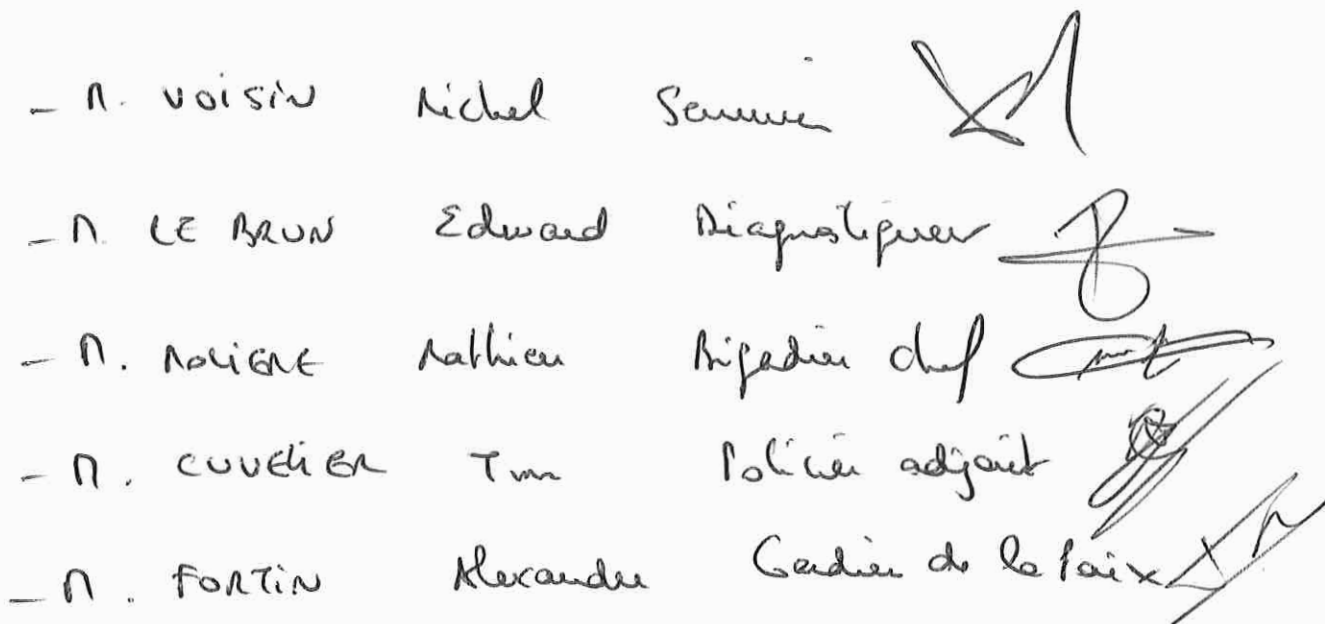 - M. VOISIN Michel Serrurier
- M. LE BRUN Edward Diagnostiqueur
- M. MOLIERE Mathieu Brigadier chef
- M. CUVELIER Tom Policier adjoint
- M. FORTIN Alexandre Gardien de la Paix